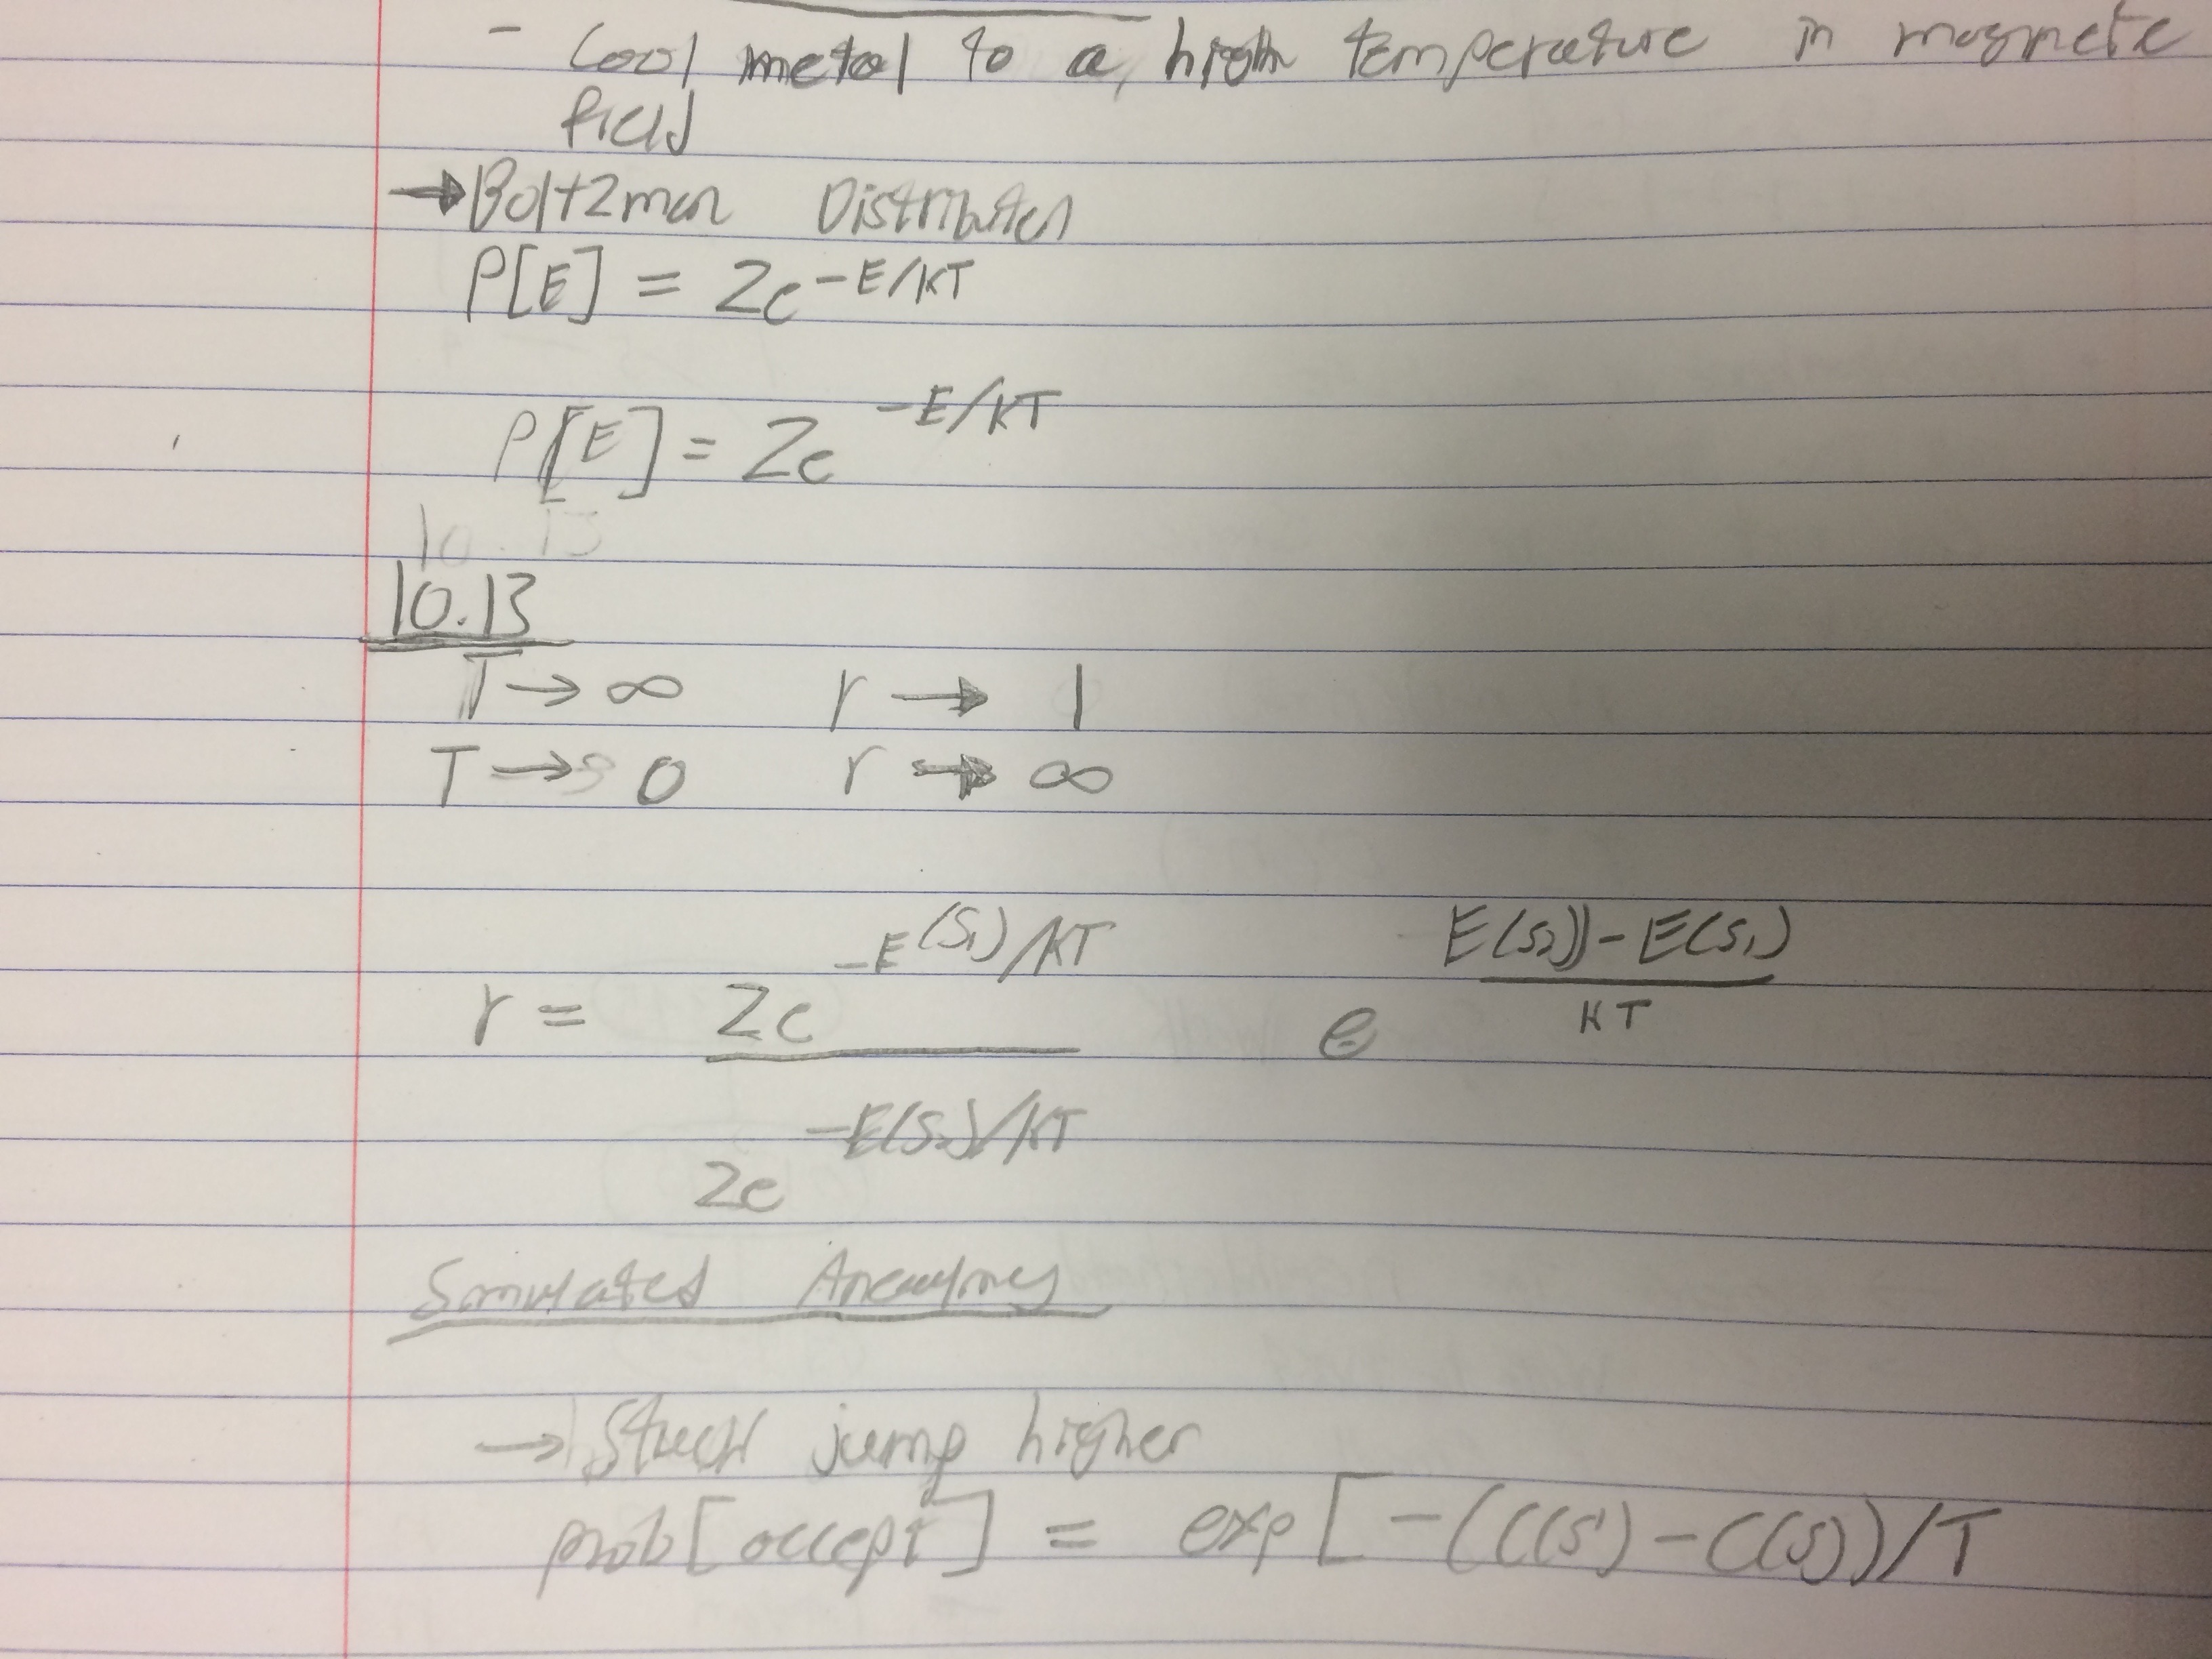 - Cool metal to a high temperature in magnetic
field
→ Boltzman Distribution
P[E] = Ze^-E/KT
P[E] = Ze^-E/KT
10.13
10.13
T → ∞ r → 1
T → 0 r → ∞
r = Ze^-E(S₁)/KT / Ze^-E(S₂)/KT e^(E(S₂)) - E(S₁) / KT
Simulated Annealing
→ Stuck jump higher
prob[accept] = exp[-(C(S') - C(S))/T